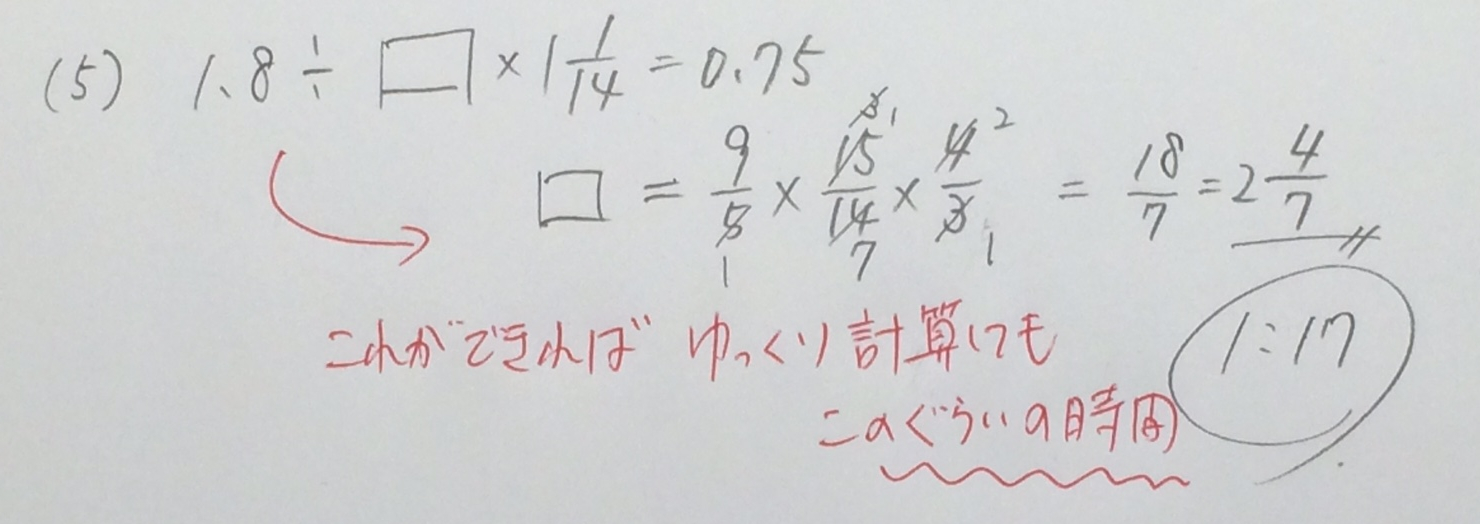 (5) 1.8 ÷ □ × 1 1/14 = 0.75
□ = 9/5 × 15/14 × 4/3 = 18/7 = 2 4/7
1 3 1 7 2 1
これができれば ゆっくり計算しても
このぐらいの時間
1:17